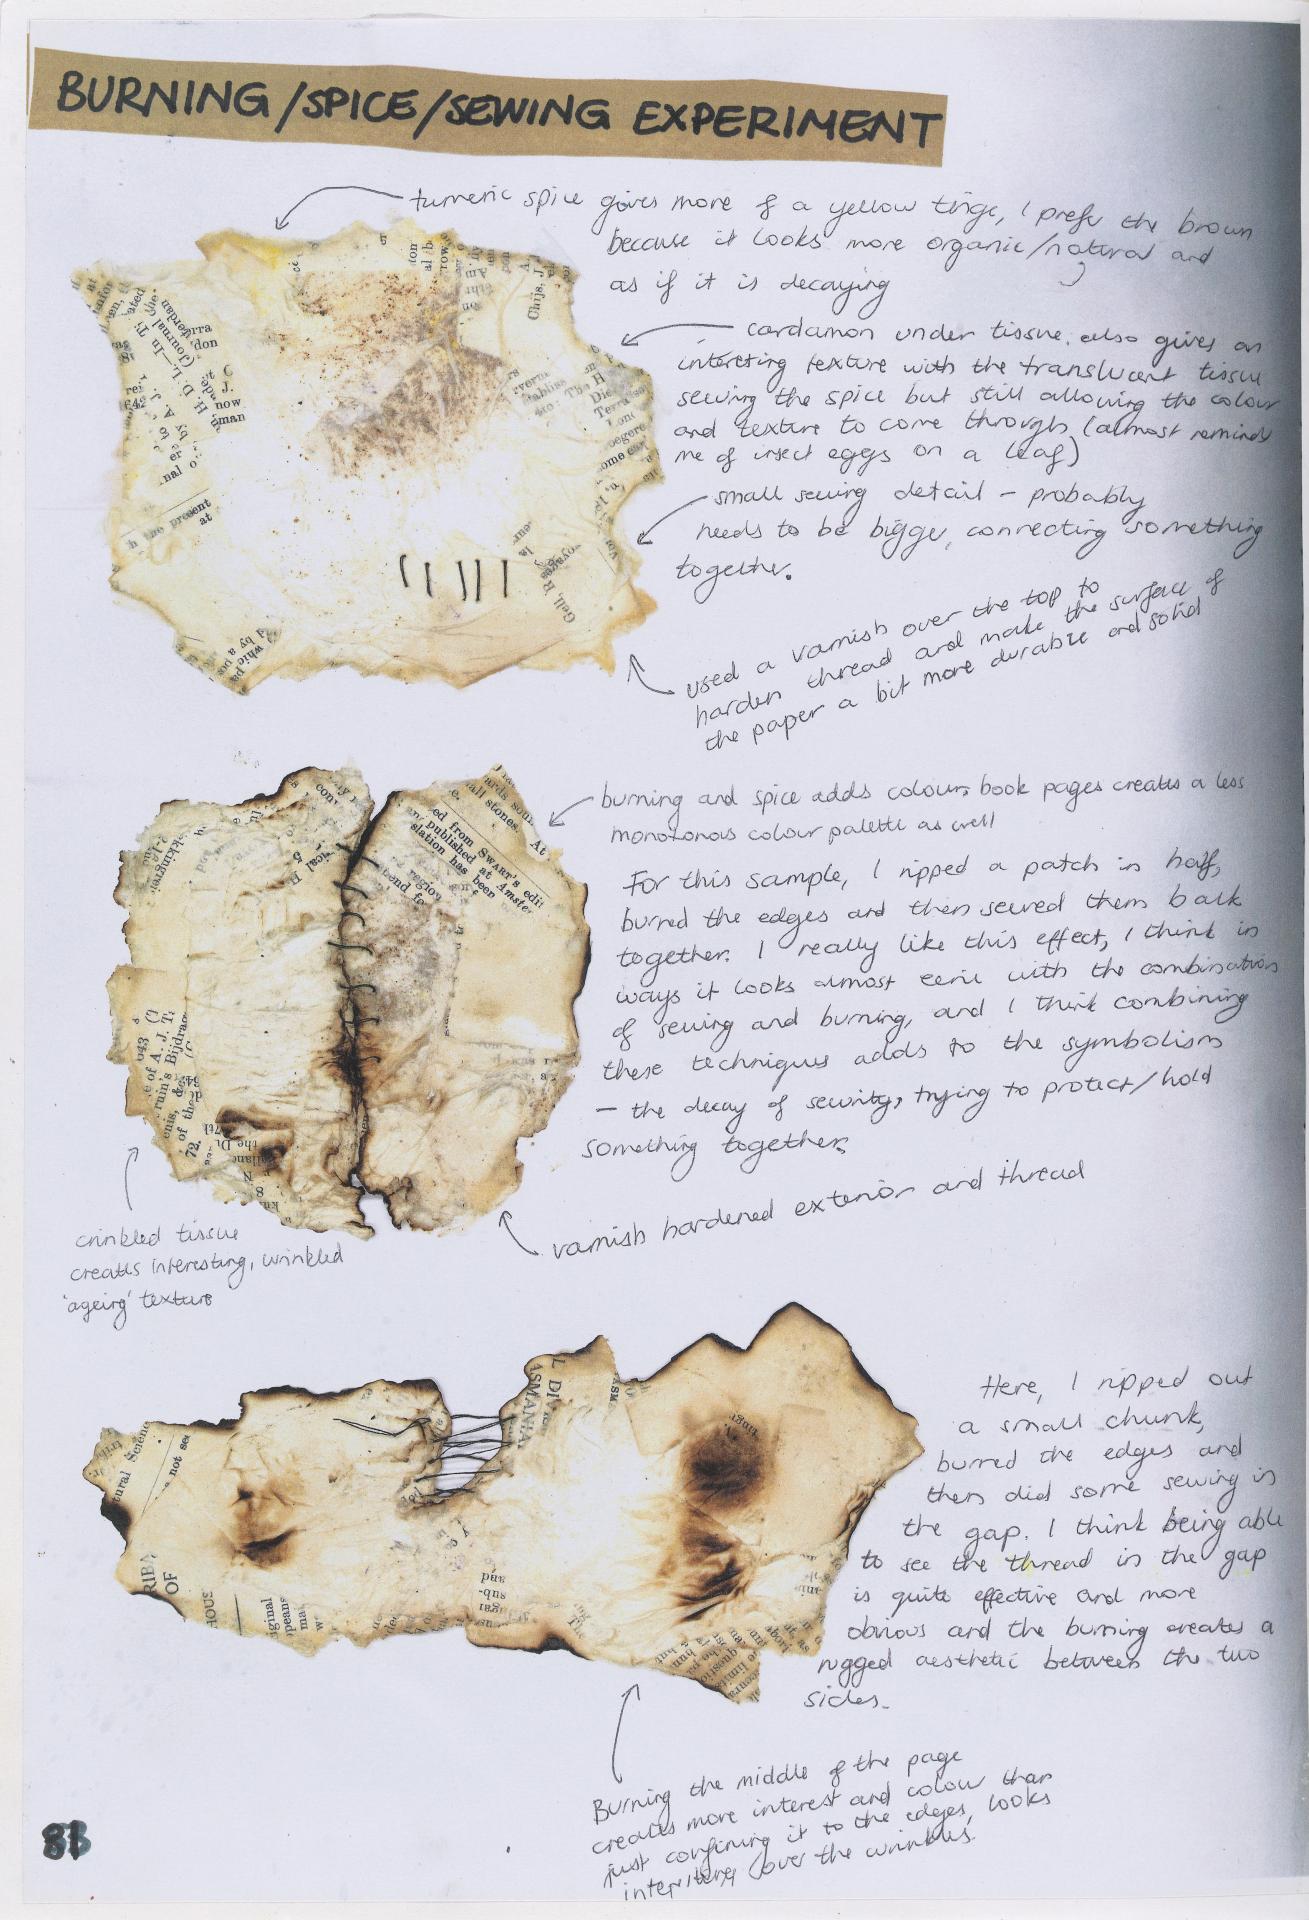 BURNING/SPICE/SEWING EXPERIMENT
tumeric spice gives more of a yellow tinge, I prefer the brown
because it looks more organic/natural and
as if it is decaying
cardamon under tissue also gives an
interesting texture with the translucent tissue
securing the spice but still allowing the colour
and texture to come through (almost reminds
me of insect eggs on a leaf)
small sewing detail - probably
needs to be bigger, connecting something
together.
used a varnish over the top to
harden thread and make the surface of
the paper a bit more durable and solid
burning and spice adds colour, book pages creates a less
monotonous colour palette as well
For this sample, I ripped a patch in half,
burned the edges and then sewed them back
together. I really like this effect, I think in
ways it looks almost eerie with the combination
of sewing and burning, and I think combining
these techniques adds to the symbolism
- the decay of security, trying to protect/hold
something together.
varnish hardened exterior and thread
crinkled tissue
creates interesting, wrinkled
'ageing' texture
Here, I ripped out
a small chunk,
burned the edges and
then did some sewing in
the gap. I think being able
to see the thread in the gap
is quite effective and more
obvious and the burning creates a
rugged aesthetic between the two
sides.
Burning the middle of the page
creates more interest and colour than
just confining it to the edges, looks
interesting over the wrinkles.
now
man
h the present
at
Chijs, J.
Gell, R
ed from SWART's edi
published at Amste
slation has been
region
all stones.
At
643
e of A. J. T.
ruin's Bijdra
of the
72.
ASMANIA
L DIV
tural Scienc
not se
RIBA
OF
iginal
peans
and
sub-